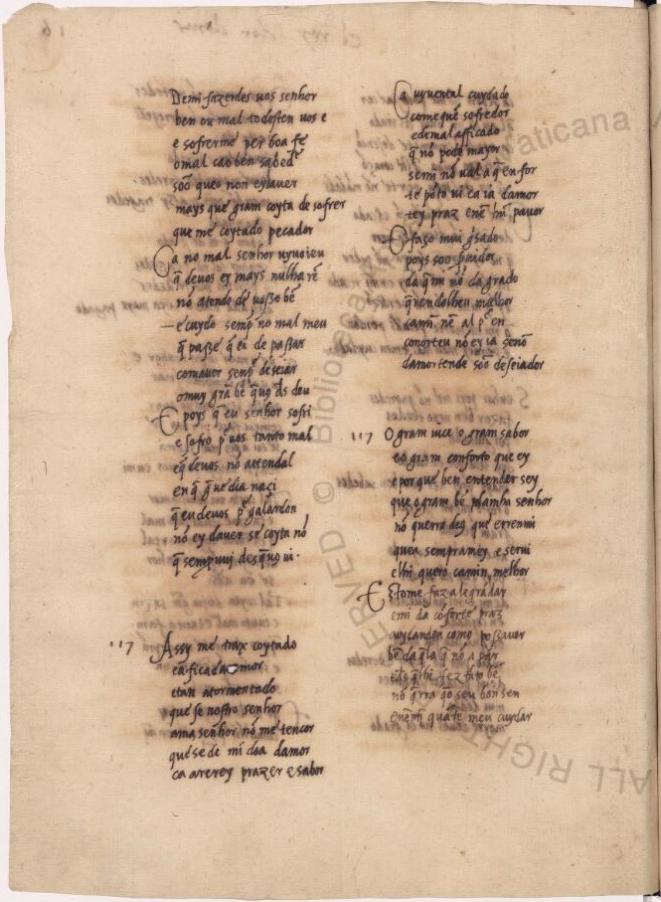 16
el rey don denis
De mi fazerdes vos senhor
ben ou mal todesten vos e
e sofrerme per boa fe
o mal ca o ben sabed̃
soõ que o non ey dauer
mays que gram coyta de sofrer
que me coytado pecador
Ca no mal senhor
q̃ de uos ey mays nulha rẽ
nõ atende de uosso bẽ
e cuydo semp̃ no mal meu
q̃ passe q̃ ei de passar
com auer semp̃ deseiar
o muy grã bẽ q̃ uos d̃s deu
E poys q̃ eu senhor sofri
e sofro p̃ uos tanto mal
e q̃ de uos nõ attendal
en q̃ g̃ue dia naçi
q̃ eu de uos p̃ galardon
nõ ey dauer se coyta nõ
q̃ semp̃ uui des q̃ uos ui.
117 Assy me trax coytado
e aficada mor
e tan atormentado
que se nostro senhor
a ma senhor nõ me ten cor
que se de mi doa damor
ca auerey prazer e sabor
Ca uyuental cuydado
come que sofredor
e de mal afficado
q̃ nõ pode mayor
se mi nõ ual a q̃ en for
te põto ui ca ia da mor
tey praz enẽ hũ pauor
E faço mui g̃sado
poys soo seruidor
da q̃ mi nõ da grado
q̃rendolheu melhor
ca mi nẽ al p̃ en
conorteu nõ ey ia senõ
da mortende soõ deseiador
117 O gram uiço o gram sabor
e o gram conforto que ey
e por que ben entender sey
que o gram bẽ da mha senhor
nõ querra deg que err en mi
que a sempramey e serui
e lhi quero ca mi melhor
Esto me faz alegrãdar
e mi da cõforte praz
cuydando como possauer
bẽ da q̃la q̃ nõ a par
e d̃s q̃ lhi fez tãto bẽ
nõ q̃rra q̃ o seu bon sen
meu cuydar